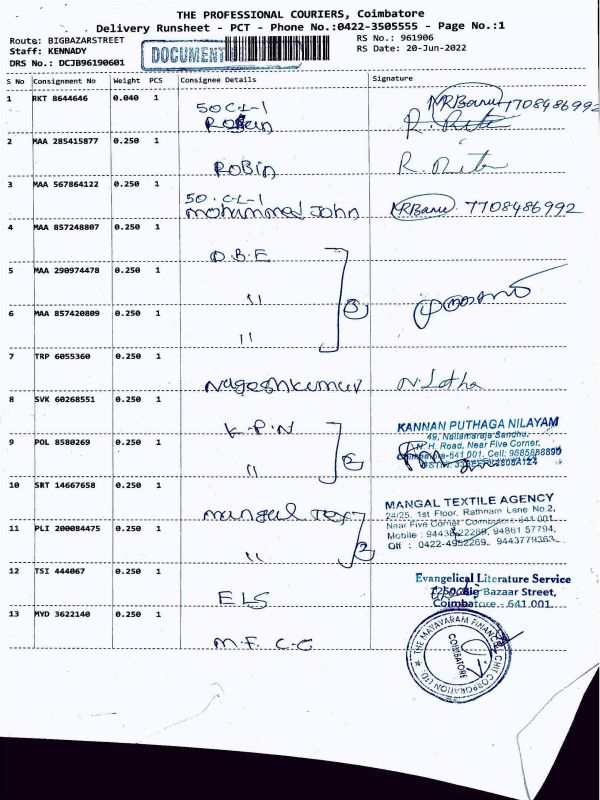 THE PROFESSIONAL COURIERS, Coimbatore
Delivery Runsheet - PCT - Phone No.:0422-3505555 - Page No.:1
Route: BIGBAZARSTREET
RS No.: 961906
Staff: KENNADY
DOCUMENT
RS Date: 20-Jun-2022
DRS No.: DCJB96190601
S No Consignment No Weight PCS Consignee Details Signature
1 RKT 8644646 0.040 1
50 C L-1
NRBanu 7708486992
Robin R. Rita
2 MAA 285415877 0.250 1
ROBIN R. Rita
3 MAA 567864122 0.250 1
50 . C L-1
mohammed John NRBanu 7708486992
4 MAA 857248807 0.250 1
O.B.E
5 MAA 290974478 0.250 1
"
3
6 MAA 857420809 0.250 1
"
7 TRP 6055360 0.250 1
Nageshkumar N. Latha
8 SVK 60268551 0.250 1
K.P.N
KANNAN PUTHAGA NILAYAM
49, Nallamaraja Sandhu,
N.H. Road, Near Five Corner,
9 POL 8580269 0.250 1
Coimbatore-641 001. Cell: 9585888890
" 2
10 SRT 14667658 0.250 1
mangal Tex
MANGAL TEXTILE AGENCY
24/25, 1st Floor, Rathnam Lane No.2,
Near Five Corner Coimbatore-641 001
11 PLI 200084475 0.250 1
Mobile : 22269, 94861 57794,
Off : 0422-4952269. 9443779363
" 2
12 TSI 444067 0.250 1
Evangelical Literature Service
Big Bazaar Street,
ELS
Coimbatore - 641 001
13 MYD 3622140 0.250 1
M.F.C.C
THE MAYAVARAM FINANCIAL CHIT CORPORATION LTD.
COIMBATORE